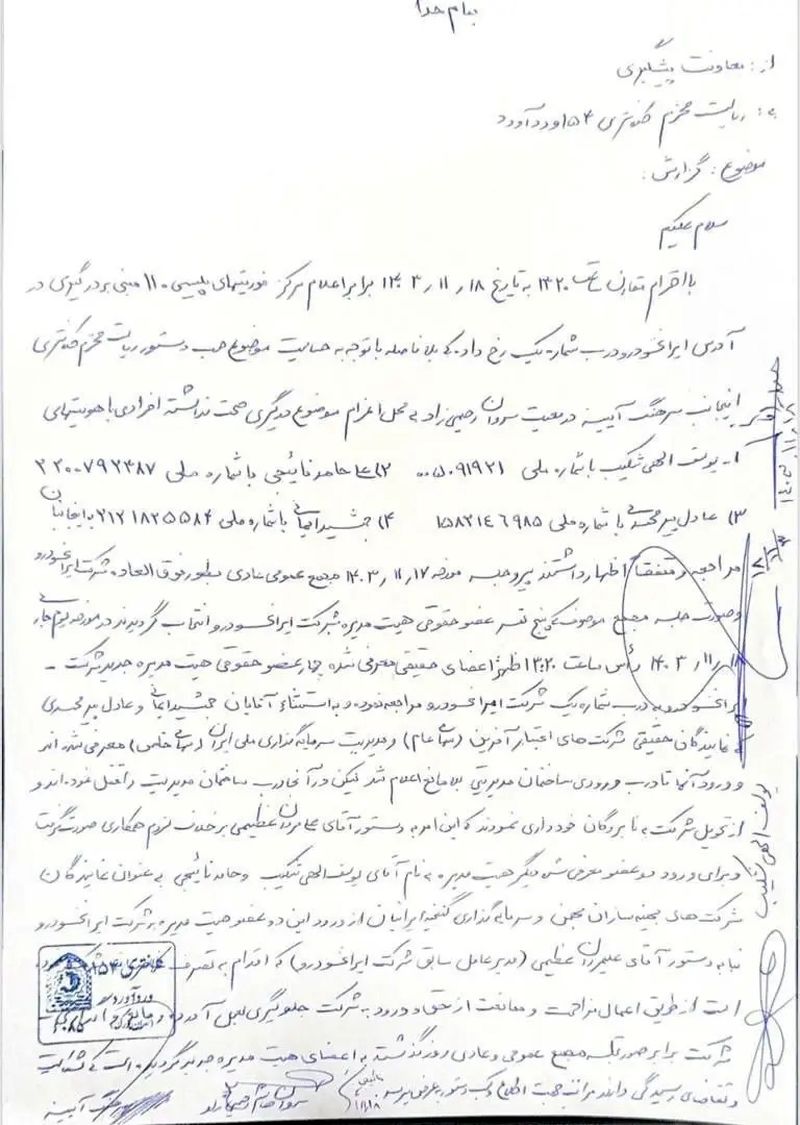 بنام خدا
از: معاونت پیشگیری
به: ریاست محترم کلانتری ۱۵۴ وردآورد
موضوع: گزارش:
سلام علیکم
با احترام مقارن ساعت ۱۳۲۰ به تاریخ ۱۸/۱۱/۱۴۰۳ برابر اعلام مرکز فوریتهای پلیسی ۱۱۰ مبنی بر درگیری در
آدرس ایرانخودرو درب شماره یک رخ داده که بلافاصله با توجه به حساسیت موضوع حسب دستور ریاست محترم کلانتری
اینجانب سرهنگ آیینه در معیت سروان رحیمی زاد به محل اعزام موضوع درگیری صحت نداشته افرادی با هویتهای
۱- یوسف الهی شکیب با شماره ملی ۰۰۵۰۹۱۹۲۱ ۲) حامد فائیجی با شماره ملی ۳۲۰۰۷۹۲۳۸۷
۳) عادل پیرمحمدی با شماره ملی ۱۵۸۲۱۴۶۹۸۵ ۴) جمشید ایمانی با شماره ملی ۲۱۲۱۸۲۵۵۸۴ به اینجانبان
مراجعه و متفقاً اظهار داشتند پیرو جلسه مورخه ۱۷/۱۱/۱۴۰۳ مجمع عمومی عادی بطور فوق العاده شرکت ایرانخودرو
و صورت جلسه مجمع موصوف که پنج نفر عضو حقوقی هیت مدیره شرکت ایرانخودرو انتخاب گردیدند در مورخه یوم جاری
۱۸/۱۱/۱۴۰۳ رأس ساعت ۱۳:۲۰ ظهر اعضای حقیقی معرفی شده چهار عضو حقوقی هیت مدیره جدید شرکت -
ایرانخودرو به درب شماره یک شرکت ایرانخودرو مراجعه نموده و به استثناء آقایان جمشید ایمانی و عادل پیرمحمدی
نمایندگان حقیقی شرکت های اعتبار آفرین (سهامی عام) و مدیریت سرمایه گذاری ملی ایران (سهامی خاص) معرفی شده اند
و ورود آنها تا درب ورودی ساختمان مدیریتی بلامانع اعلام شد لیکن در آنجا درب ساختمان مدیریت را قفل نموده اند و
از تحویل شرکت به نامبردگان خودداری نمودند که این امر به دستور آقای علیمردان عظیمی برخلاف لزوم همکاری صورت گرفت
و برای ورود دو عضو معرفی شده دیگر هیت مدیره به نام آقای یوسف الهی شکیب و حامد فائیجی به عنوان نمایندگان
شرکت های بهینه سازان بهمن و سرمایه گذاری گنجینه ایرانیان از ورود این دو عضو هیت مدیره به شرکت ایرانخودرو
بنا به دستور آقای علیمردان عظیمی (مدیرعامل سابق شرکت ایرانخودرو) که اقدام به تصرف
است از طریق اعمال مزاحمت و ممانعت از حق و ورود به شرکت جلوگیری بعمل آمده و مانع واگذاری
شرکت برابر صورتجلسه مجمع عمومی و عادی روز گذشته به اعضای هیت مدیره جدید گردیده است که شکایت
و تقاضای رسیدگی دارند مراتب جهت اطلاع و کسب دستور بعرض میرسد
۱۱/۱۸
سروان رحیمی زاد
سرهنگ آیینه
یوسف الهی شکیب
کلانتری ۱۵۴
وردآورد